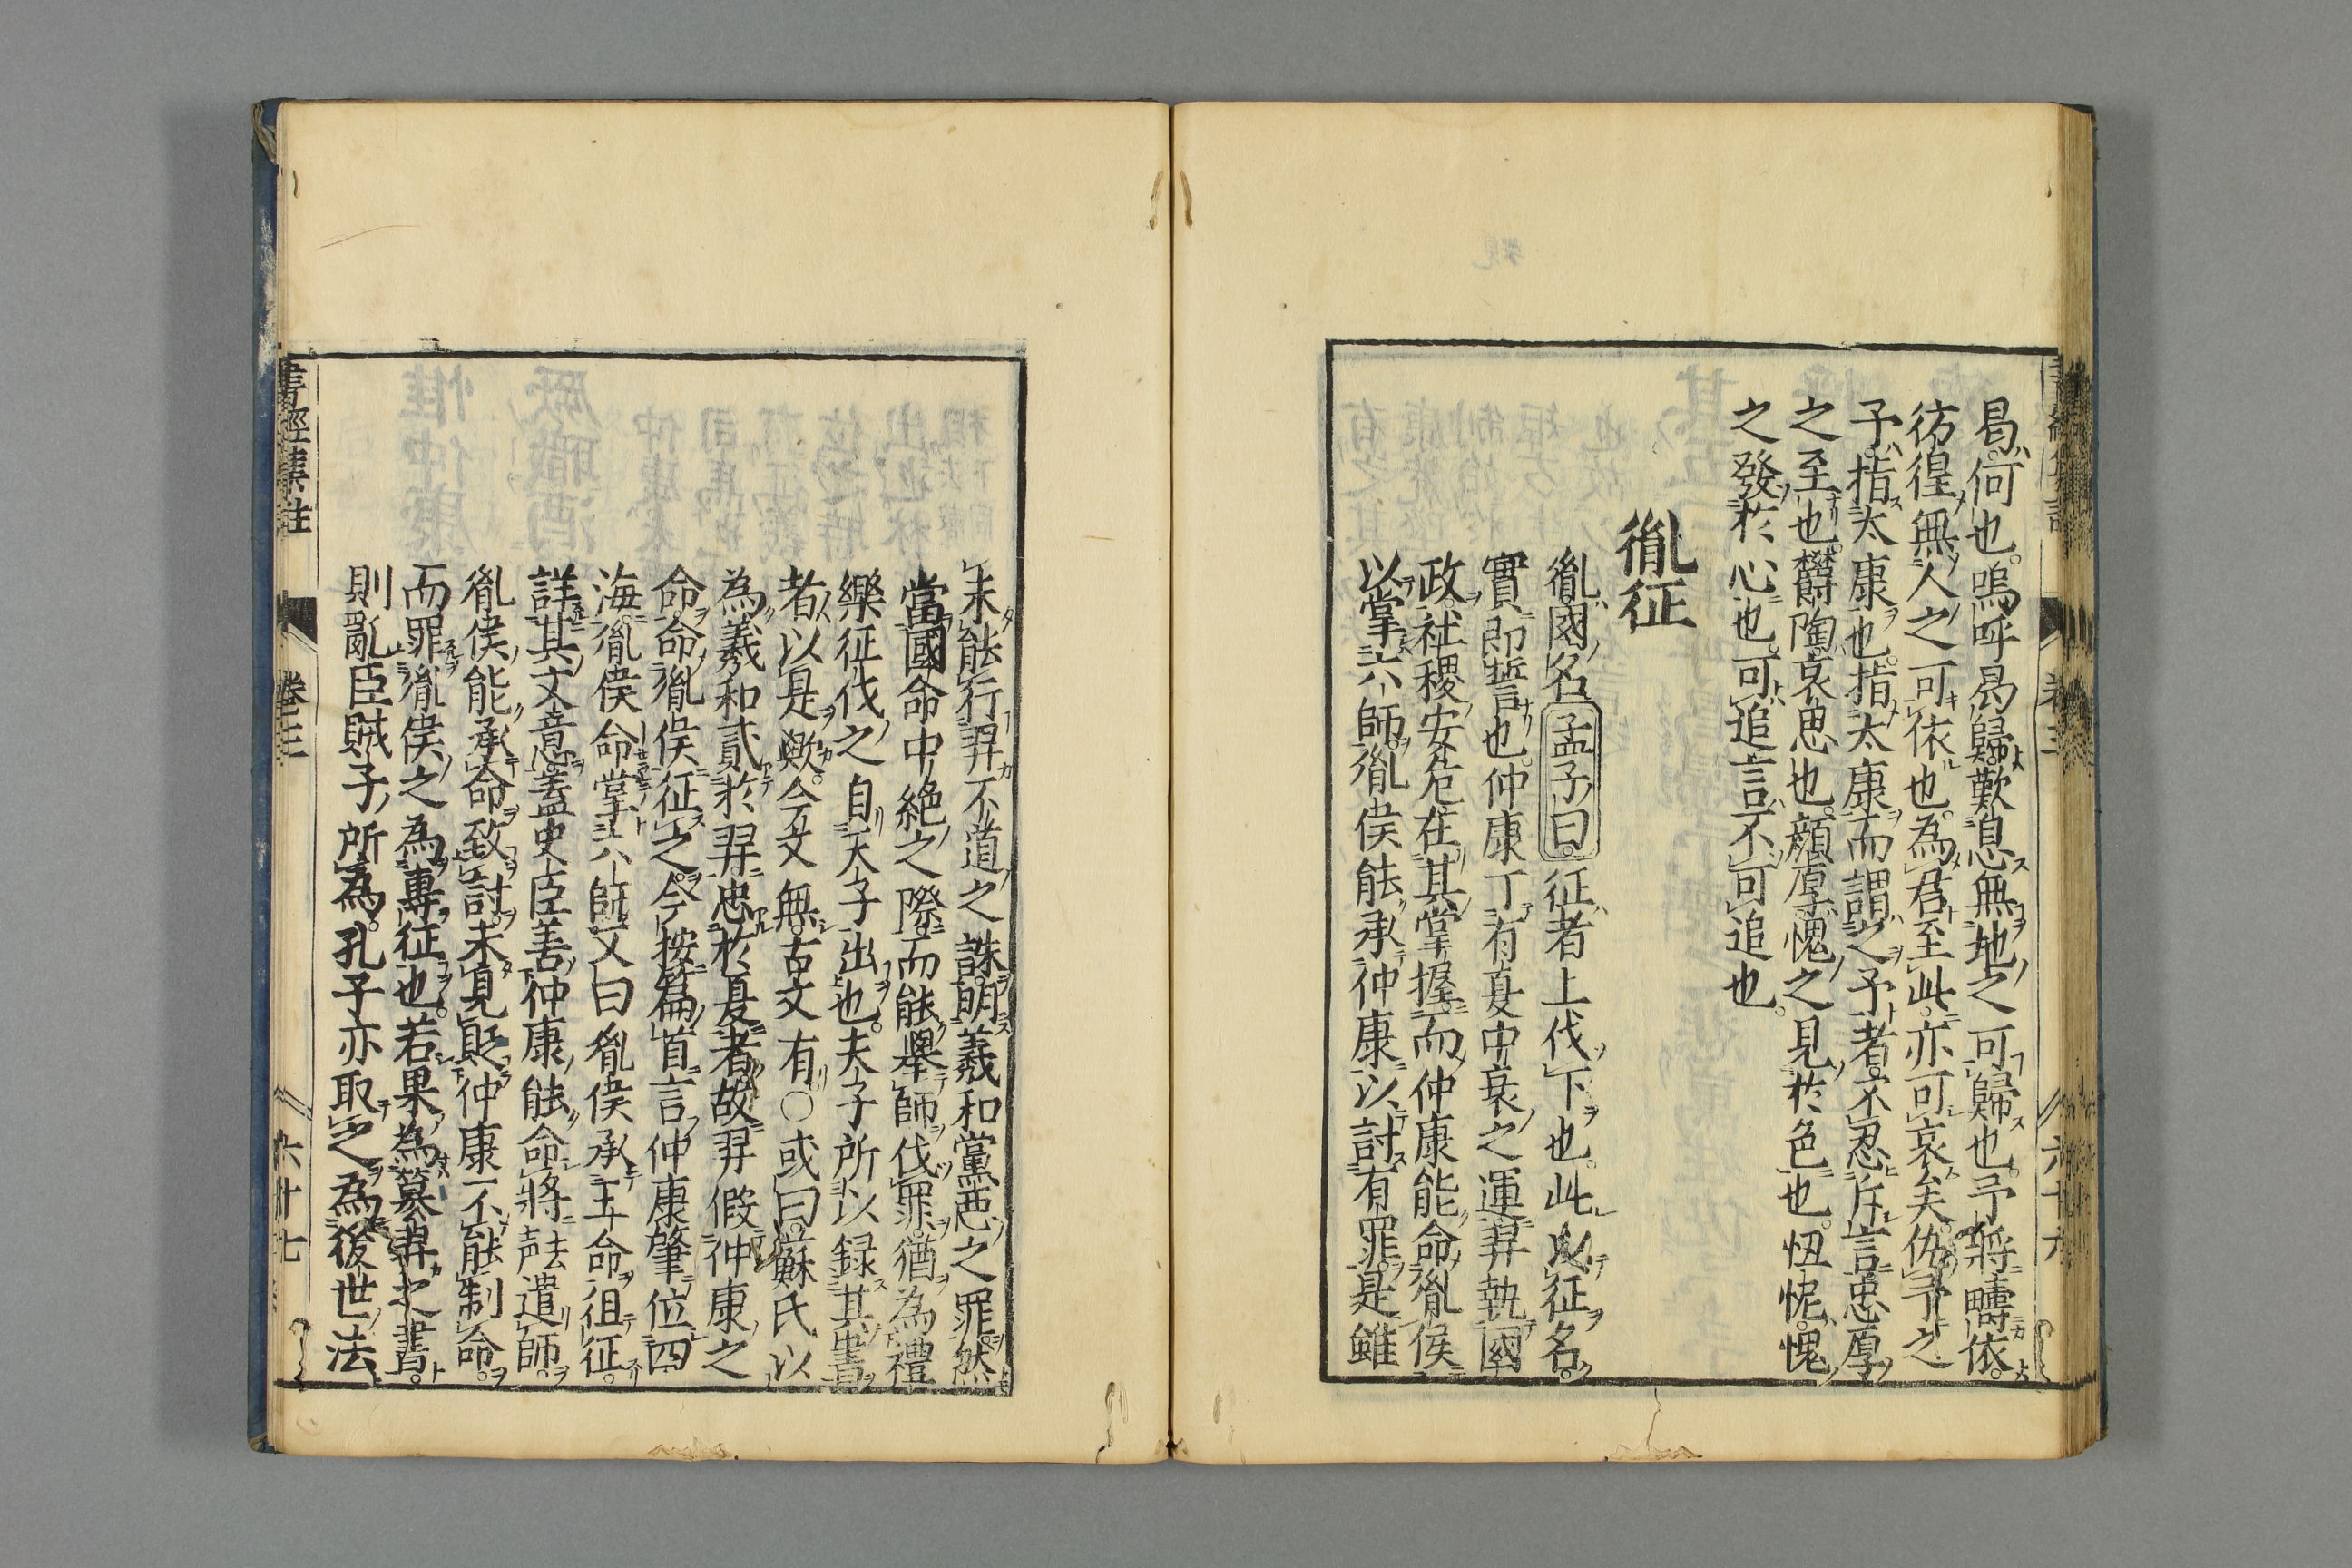 曷何也。嗚呼曷歸歎息無地之可歸也。予將疇依。
彷徨無人之可依也。為君至此。亦可哀矣。仇予之
予。指太康也。指太康而謂之予者。不忍斥言。忠厚
之至也。欝陶哀思也。顔厚愧之見於色也。忸怩愧
之發於心也。可追言不可追也。
胤征
胤國名孟子曰。征者上伐下也。此以征名。
實即誓也。仲康丁有夏中衰之運。羿執國
政。社稷安危在其掌握。而仲康能命胤侯
以掌六師。胤侯能承仲康以討有罪。是雖
未能行羿不道之誅。明羲和黨惡之罪。然
當國命中絶之際。而能舉師伐罪。猶為禮
樂征伐之自天子出也。夫子所以録其書
者。以是歟。今文無。古文有。○或曰。蘇氏以
為羲和貳於羿。忠於夏者。故羿假仲康之
命。命胤侯征之。今按篇首言仲康肇位四
海。胤侯命掌六師。又曰胤侯承王命徂征。
詳其文意。蓋史臣善仲康能命將遣師。
胤侯能承命致討。未見貶仲康不能制命。
而罪胤侯之為專征也。若果為簒羿之書。
則亂臣賊子所為。孔子亦取之為後世法
書經集註
卷三
六十七
卷三
六十六